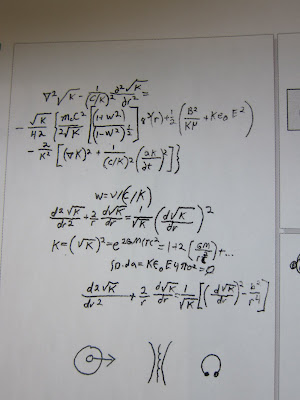 ∇²√K - 1/(C/K)² ∂²√K/∂r² =
- √K/4λ { M₀C²/2√K [(1+W²)/(1-W²)½] δ³(r) + 1/2 (B²/Kμ + Kε₀E²)
- λ/K² [(∇K)² + 1/(C/K)² (∂K/∂t)²] }
W = V/(C/K)
d²√K/dr² + 2/r d√K/dr = 1/√K (d√K/dr)²
K = (√K)² = e^2GM/rc² = 1 + 2(GM/rc²) + ...
∫D·da = Kε₀E4πr² = Q
d²√K/dr² + 2/r d√K/dr = 1/√K [(d√K/dr)² - b²/r⁴]